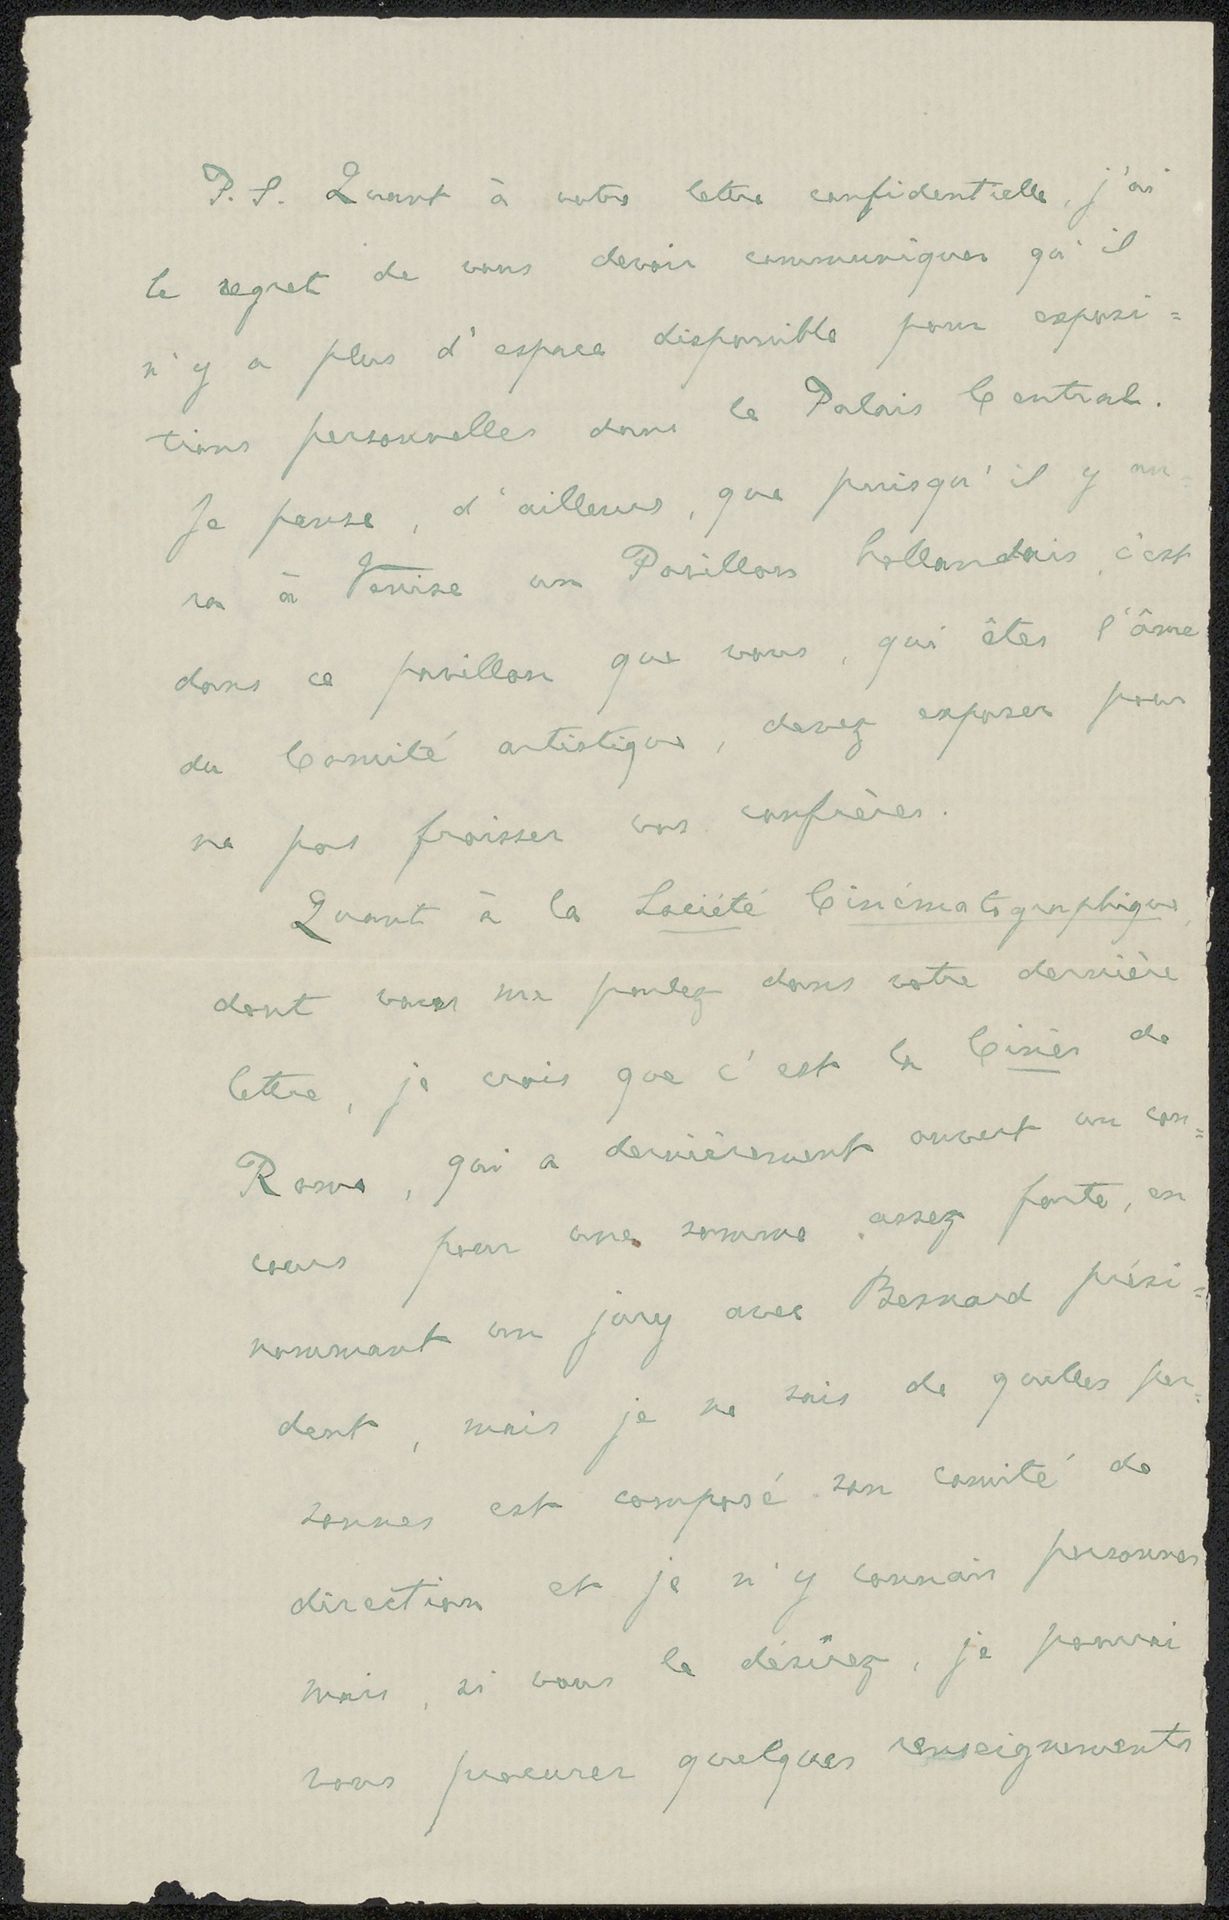 P.S. Quant à votre lettre confidentielle, j'ai
le regret de vous devoir communiquer qu'il
n'y a plus d'espace disponible pour exposi=
tions personnelles dans le Palais Central.
Je pense, d'ailleurs, que puisqu'il y au=
ra à Venise un Pavillon hollandais, c'est
dans ce pavillon que vous, qui êtes l'âme
du Comité artistique, devez exposer pour
ne pas froisser vos confrères.
Quant à la Société Cinématographique,
dont vous me parlez dans votre dernière
lettre, je crois que c'est la Cinès de
Rome, qui a dernièrement ouvert un con=
cours pour une somme assez forte, en
nommant un jury avec Besnard prési=
dent, mais je ne sais de quelles per=
sonnes est composé son comité de
direction et je n'y connais personne
mais, si vous le désirez, je pourrai
vous procurer quelques renseignements